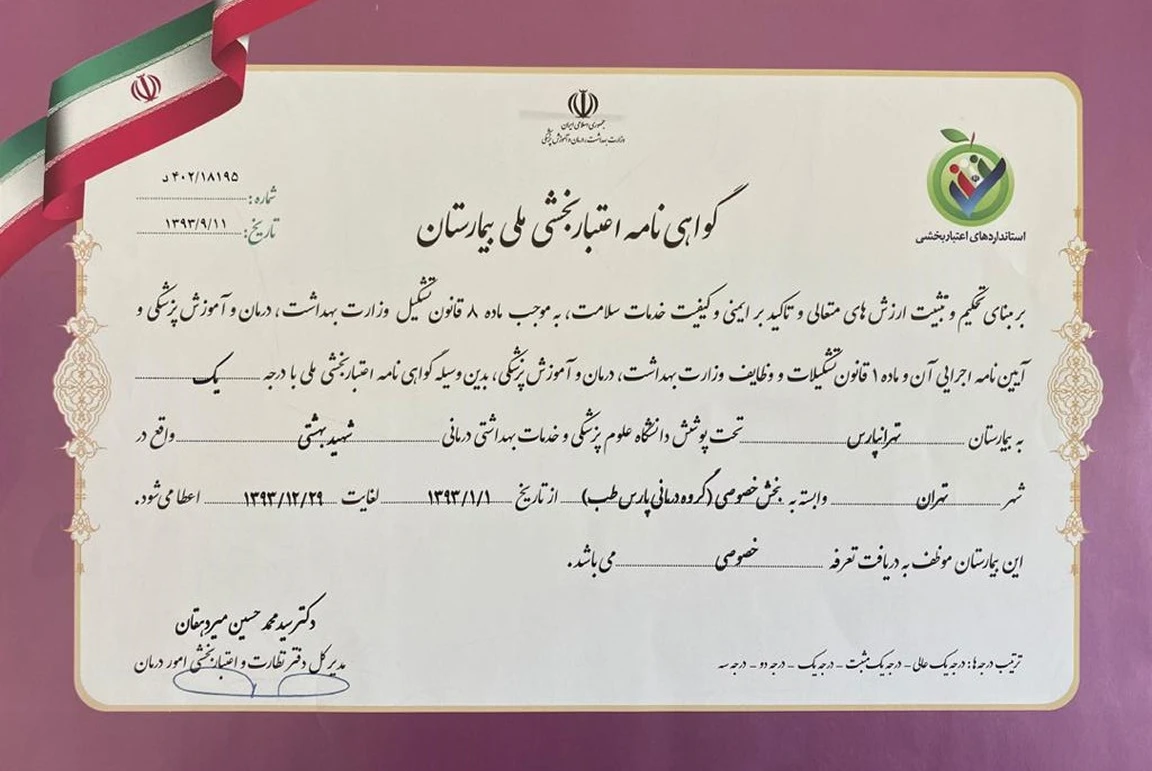 جمهوری اسلامی ایران
وزارت بهداشت، درمان و آموزش پزشکی
استانداردهای اعتباربخشی
۴۰۲/۱۸۱۹۵ د
شماره:
تاریخ: ۱۳۹۳/۹/۱۱
گواهی نامه اعتباربخشی ملی بیمارستان
بر مبنای تحکیم و تثبیت ارزش های متعالی و تاکید بر ایمنی و کیفیت خدمات سلامت، به موجب ماده ۸ قانون تشکیل وزارت بهداشت، درمان و آموزش پزشکی و
آیین نامه اجرایی آن و ماده ۱ قانون تشکیلات و وظایف وزارت بهداشت، درمان و آموزش پزشکی، بدین وسیله گواهی نامه اعتباربخشی ملی با درجه یک
به بیمارستان تهرانپارس تحت پوشش دانشگاه علوم پزشکی و خدمات بهداشتی درمانی شهید بهشتی واقع در
شهر تهران وابسته به بخش خصوصی (گروه درمانی پارس طب) از تاریخ ۱۳۹۳/۱/۱ لغایت ۱۳۹۳/۱۲/۲۹ اعطا می‌شود.
این بیمارستان موظف به دریافت تعرفه خصوصی می باشد.
دکتر سید محمد حسین میردهقان
مدیر کل دفتر نظارت و اعتباربخشی امور درمان
ترتیب درجه ها: درجه یک عالی - درجه یک مثبت - درجه یک - درجه دو - درجه سه